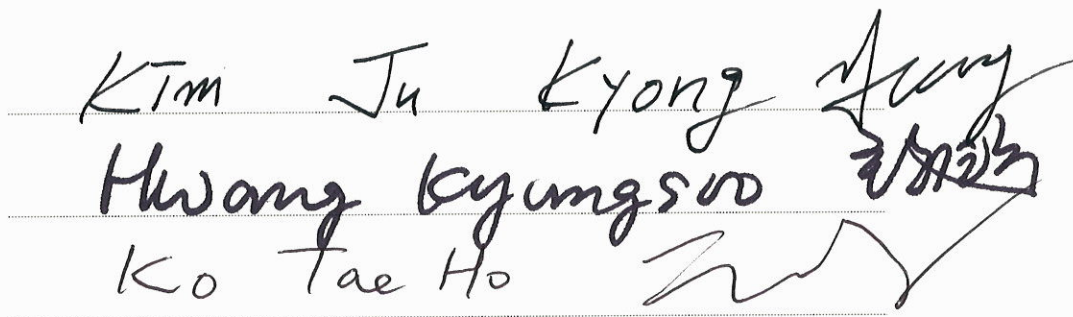 Kim Ju Kyong
Hwang Kyungsoo
Ko Tae Ho